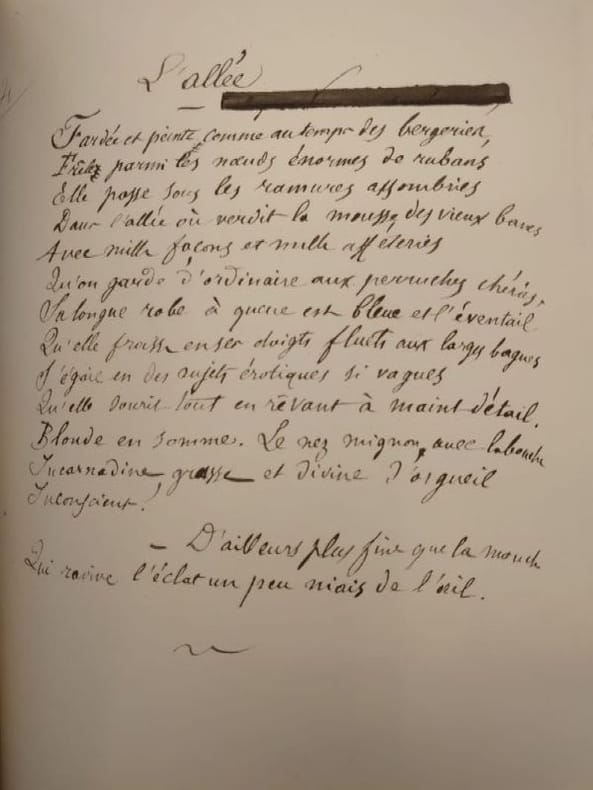 L'allée
Fardée et peinte comme au temps des bergeries,
Frêle parmi les nœuds énormes de rubans
Elle passe sous les ramures assombries
Dans l'allée où verdit la mousse des vieux bancs
Avec mille façons et mille afféteries
Qu'on garde d'ordinaire aux perruches chéries,
Sa longue robe à queue est bleue et l'éventail
Qu'elle froisse en ses doigts fluets aux larges bagues
S'égaie en des sujets érotiques si vagues
Qu'elle sourit tout en rêvant à maint détail.
Blonde en somme. Le nez mignon avec la bouche
Incarnadine, grasse et divine d'orgueil
Inconscient!
— D'ailleurs plus fine que la mouche
Qui ravive l'éclat un peu niais de l'œil.